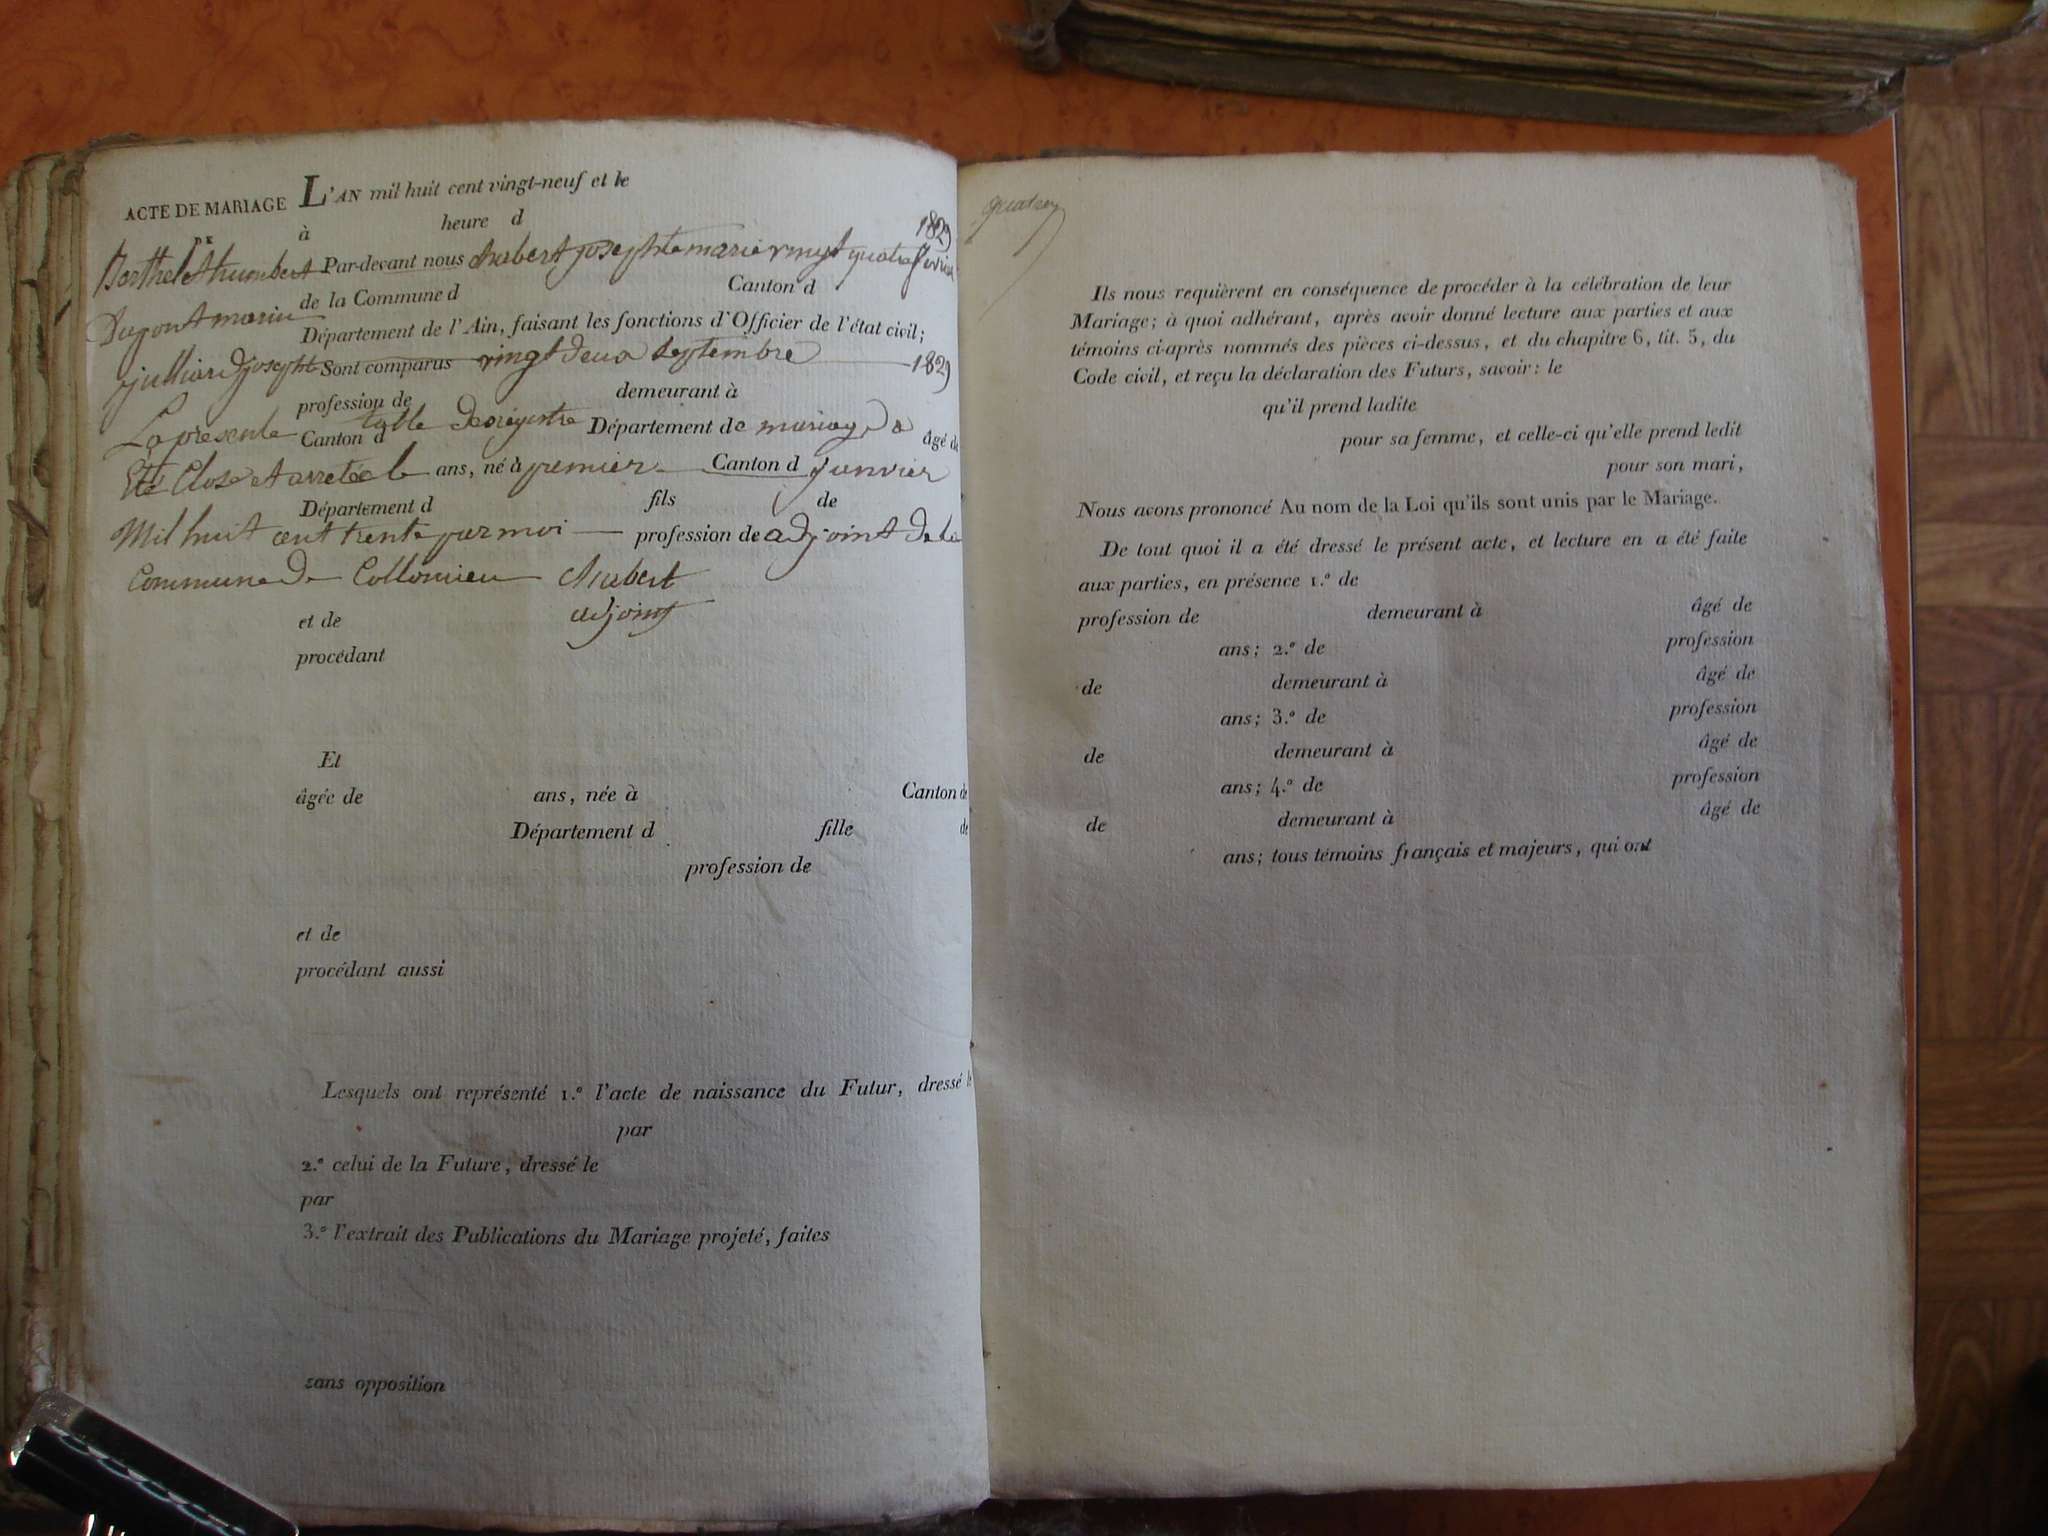 ACTE DE MARIAGE L'AN mil huit cent vingt-neuf et le
DE à heure d 1829
Berthelet humbert Par-devant nous chabert josephte marie vingt quatre fevrier
Dupont marie de la Commune d Canton d
Département de l'Ain, faisant les fonctions d'Officier de l'état civil;
julliard joseph Sont comparus vingt deux septembre 1829
profession de demeurant à
La présente table de registre Département de mariage a
Canton d âgé de
Eté Close et arretée le ans, né à premier Canton d janvier
Département d fils de
Mil huit cent trente par moi profession de adjoint de la
Commune De Collomieu Chabert
adjoint
et de
procédant
Et
âgée de ans, née à Canton de
Département d fille de
profession de
et de
procédant aussi
Lesquels ont représenté 1.º l'acte de naissance du Futur, dressé le
par
2.º celui de la Future, dressé le
par
3.º l'extrait des Publications du Mariage projeté, faites
sans opposition
Ils nous requièrent en conséquence de procéder à la célébration de leur
Mariage; à quoi adhérant, après avoir donné lecture aux parties et aux
témoins ci-après nommés des pièces ci-dessus, et du chapitre 6, tit. 5, du
Code civil, et reçu la déclaration des Futurs, savoir: le
qu'il prend ladite
pour sa femme, et celle-ci qu'elle prend ledit
pour son mari,
Nous avons prononcé Au nom de la Loi qu'ils sont unis par le Mariage.
De tout quoi il a été dressé le présent acte, et lecture en a été faite
aux parties, en présence 1.º de
profession de demeurant à âgé de
ans; 2.º de profession
de demeurant à âgé de
ans; 3.º de profession
de demeurant à âgé de
ans; 4.º de profession
de demeurant à âgé de
ans; tous témoins français et majeurs, qui ont